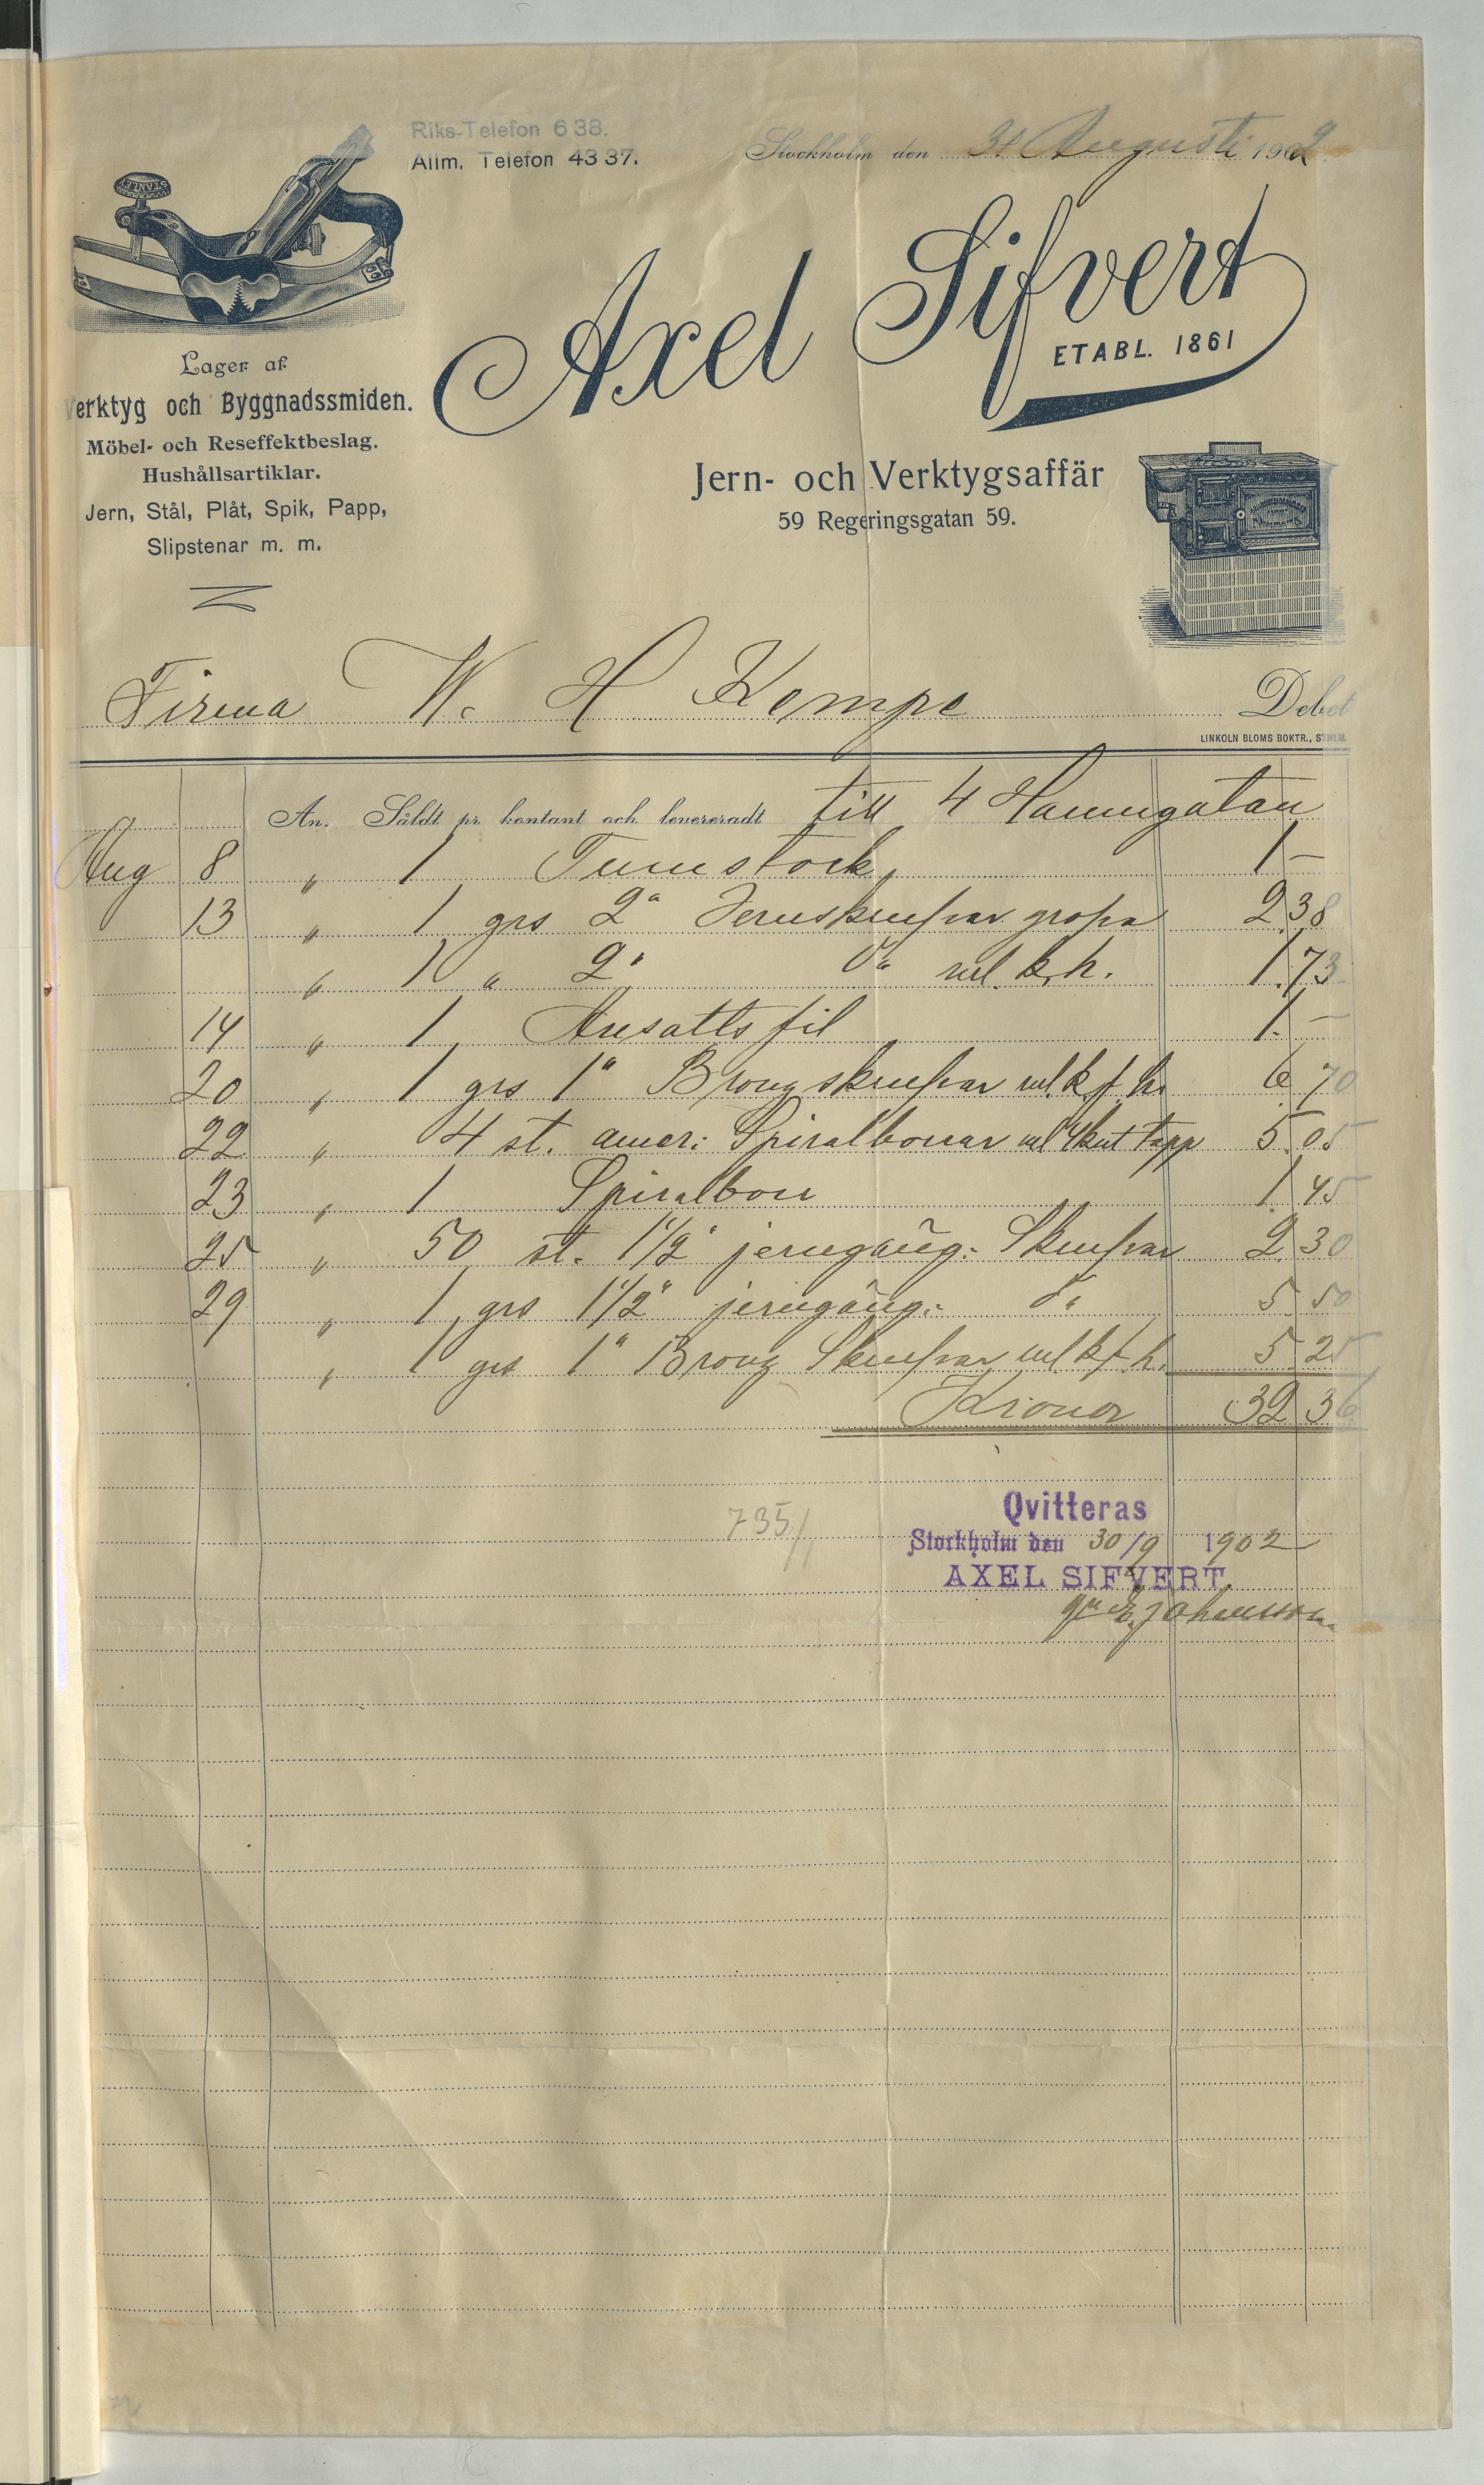 Riks-Telefon 6 38.
Allm. Telefon 43 37.
Stockholm den 31 Augusti 1902
STANLEY
Axel Sifvert
ETABL. 1861
Lager af
Verktyg och Byggnadssmiden.
Möbel- och Reseffektbeslag.
Hushållsartiklar.
Jern, Stål, Plåt, Spik, Papp,
Slipstenar m. m.
Jern- och Verktygsaffär
59 Regeringsgatan 59.
Firma W. H Kempe Debet
LINKOLN BLOMS BOKTR., STHLM.
An. Såldt pr. kontant och levereradt till 4 Hamngatan
Aug 8 " 1 Tumstock 1 -
13 " 1 grs 2" Jernskrufvar grofva 2.38
" 1 " 2" do ml. k. h. 1.73
14 " 1 Ansatts fil 1. -
20 " 1 grs 1" Brongskrufvar ml. k f. h. 6.70
22 " 4 st. amer: Spiralborrar ml 4kut tapp 5.05
23 " 1 Spiralborr 1.45
25 " 50 st. 1 1/2" jerngäng: Skrufvar 2.30
29 " 1 grs 1 1/2" jerngäng: do 5.50
" 1 grs 1" Brong Skrufvar ml k f. h. 5.25
Kronor 32 36
735
Qvitteras
Stockholm den 30/9 1902
AXEL SIFVERT
gm E. Johansson